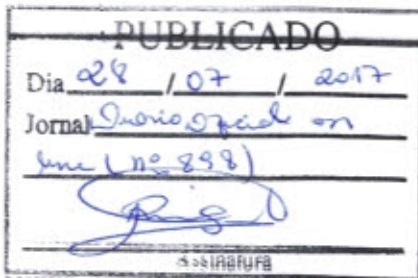 PUBLICADO
Dia 28 / 07 / 2017
Jornal Diario Oficial on
line (nº 898)
Assinatura